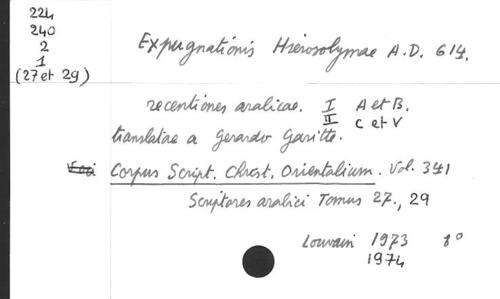 224
240
2
1
(27 et 29)
Expugnationis Hierosolymae A.D. 614.
recentiones arabicae. I A et B.
II C et V
translatae a Gerardo Garitte.
Corpus Script. Christ. Orientalium. Vol. 341
Scriptores arabici Tomus 27., 29
Louvain 1973 8°
1974